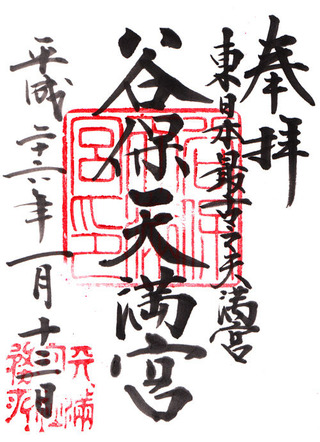 奉拝
東日本最古之天満宮
谷保天満宮
平成二十六年一月十三日